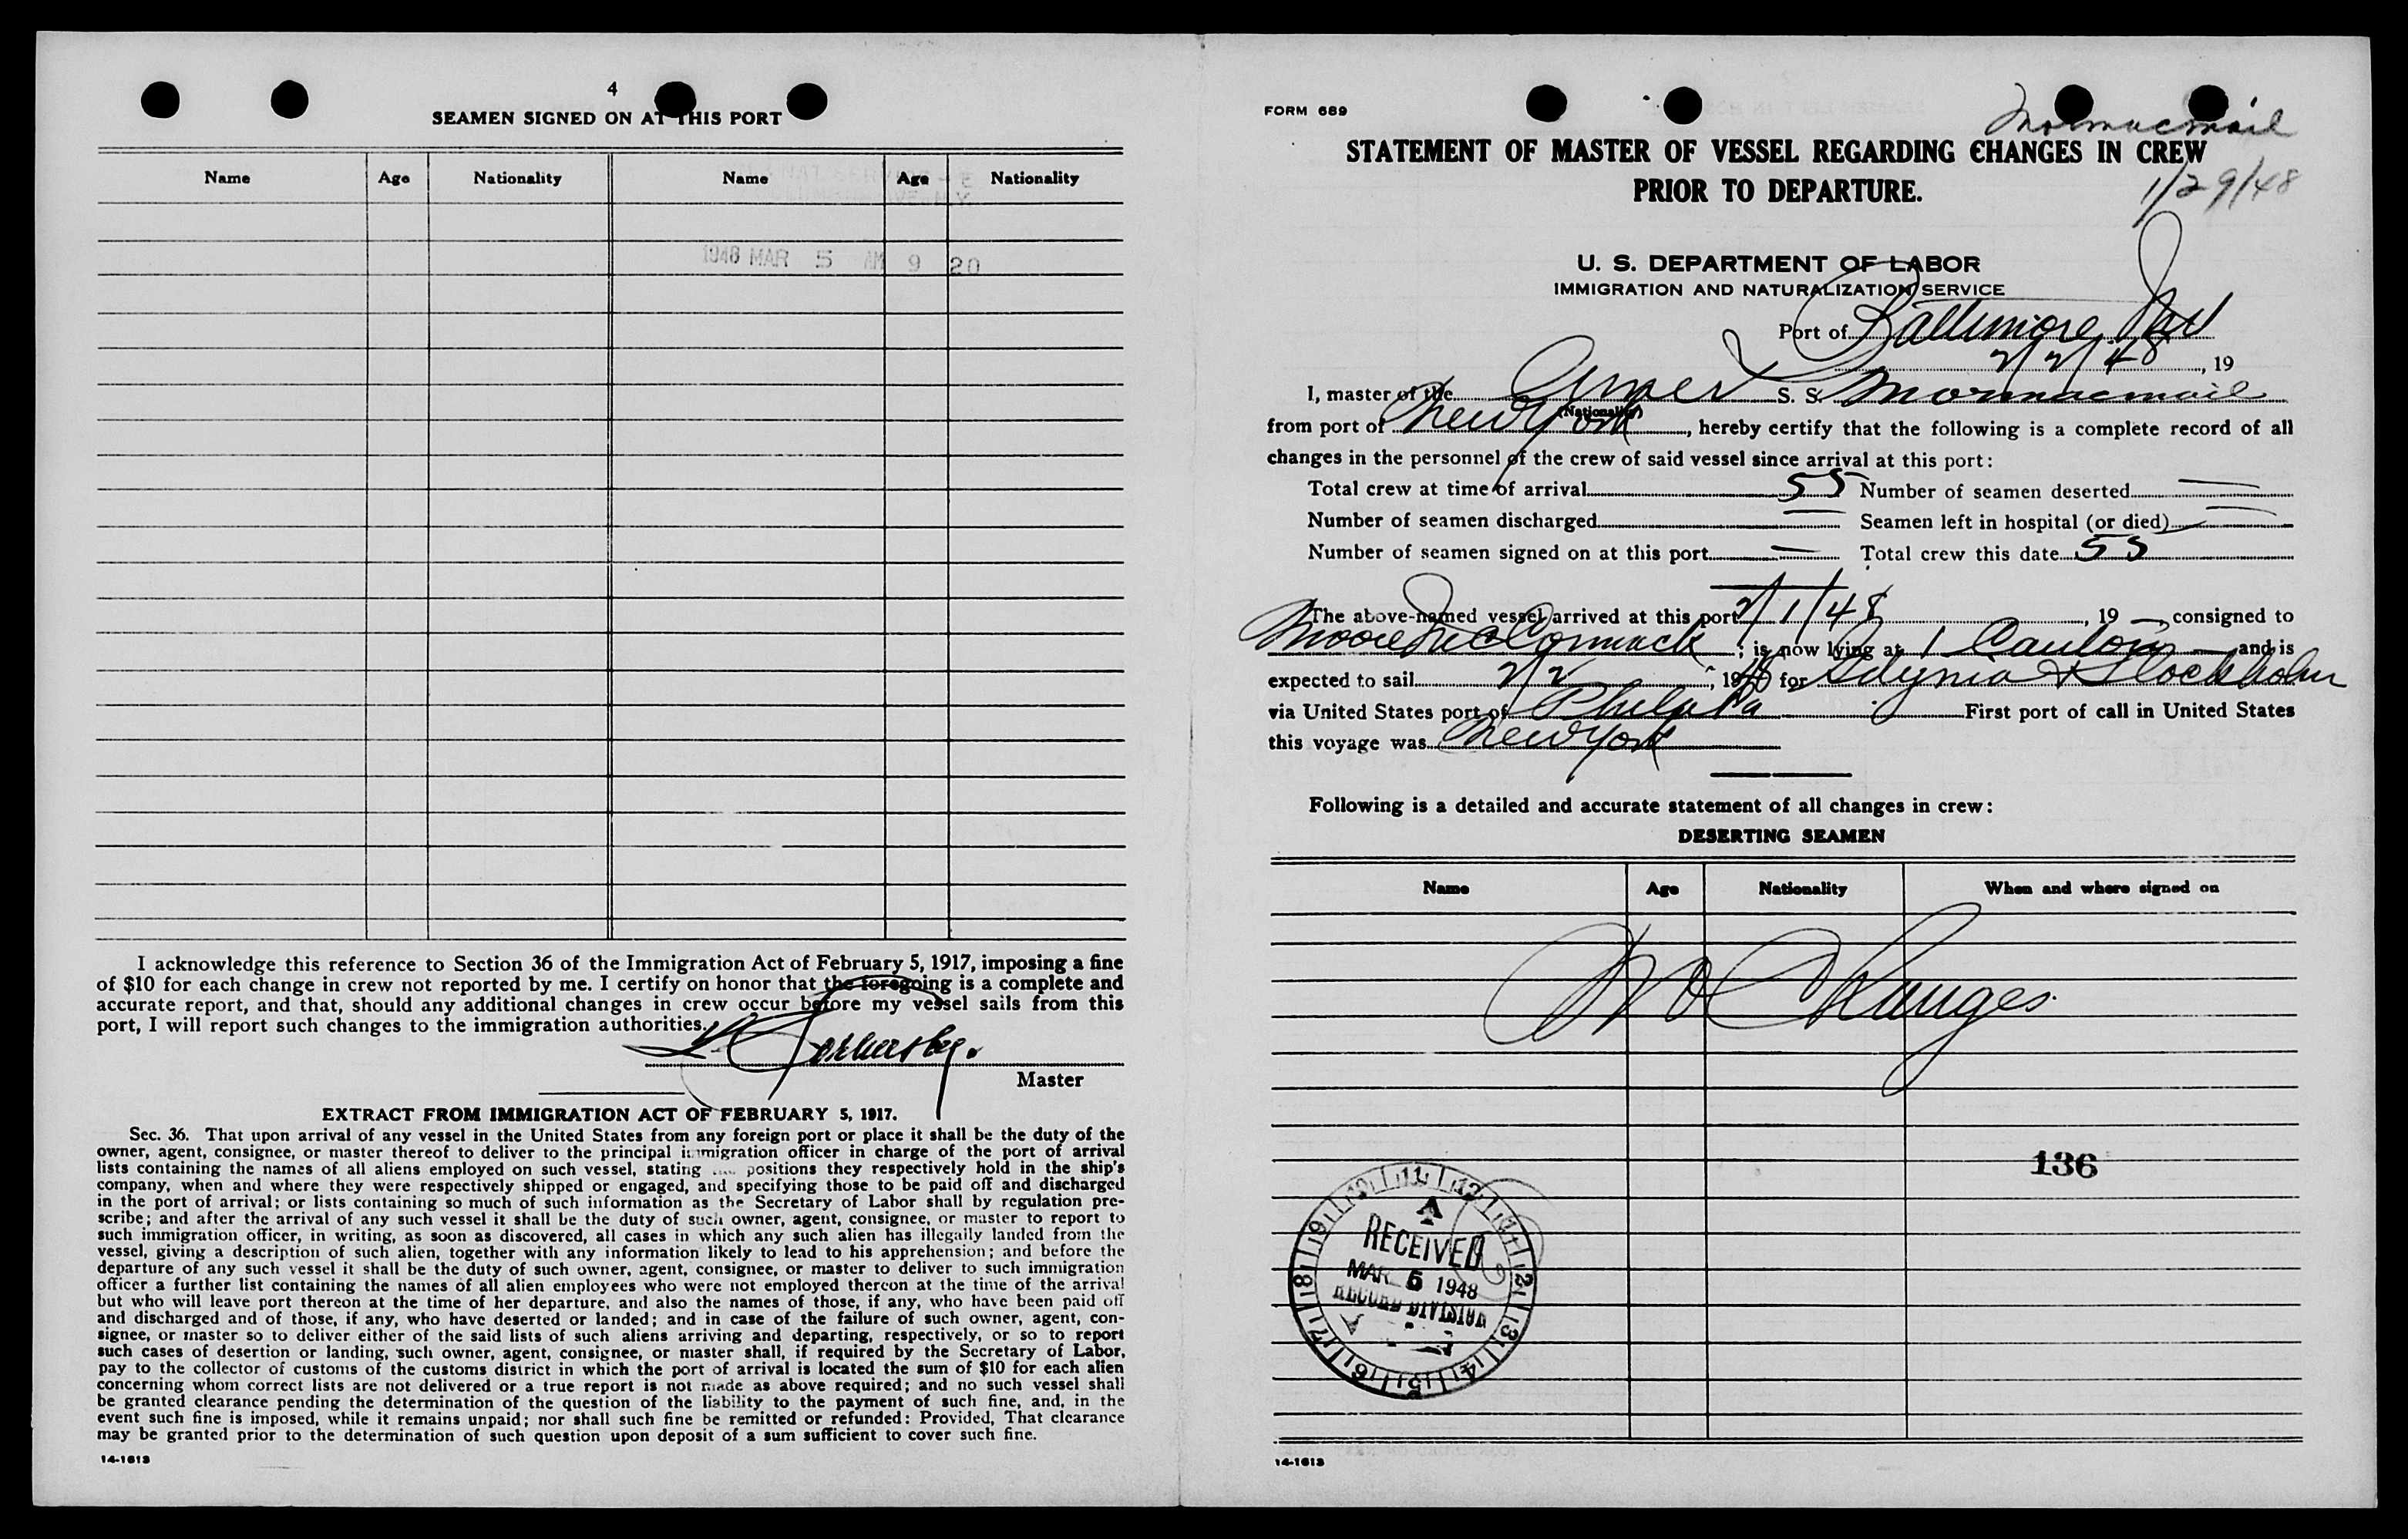 4
SEAMEN SIGNED ON AT THIS PORT
Name Age Nationality Name Age Nationality
1948 MAR 5 AM 9 20
I acknowledge this reference to Section 36 of the Immigration Act of February 5, 1917, imposing a fine
of $10 for each change in crew not reported by me. I certify on honor that the foregoing is a complete and
accurate report, and that, should any additional changes in crew occur before my vessel sails from this
port, I will report such changes to the immigration authorities.
Master
EXTRACT FROM IMMIGRATION ACT OF FEBRUARY 5, 1917.
Sec. 36. That upon arrival of any vessel in the United States from any foreign port or place it shall be the duty of the
owner, agent, consignee, or master thereof to deliver to the principal immigration officer in charge of the port of arrival
lists containing the names of all aliens employed on such vessel, stating positions they respectively hold in the ship's
company, when and where they were respectively shipped or engaged, and specifying those to be paid off and discharged
in the port of arrival; or lists containing so much of such information as the Secretary of Labor shall by regulation pre-
scribe; and after the arrival of any such vessel it shall be the duty of such owner, agent, consignee, or master to report to
such immigration officer, in writing, as soon as discovered, all cases in which any such alien has illegally landed from the
vessel, giving a description of such alien, together with any information likely to lead to his apprehension; and before the
departure of any such vessel it shall be the duty of such owner, agent, consignee, or master to deliver to such immigration
officer a further list containing the names of all alien employees who were not employed thereon at the time of the arrival
but who will leave port thereon at the time of her departure, and also the names of those, if any, who have been paid off
and discharged and of those, if any, who have deserted or landed; and in case of the failure of such owner, agent, con-
signee, or master so to deliver either of the said lists of such aliens arriving and departing, respectively, or so to report
such cases of desertion or landing, such owner, agent, consignee, or master shall, if required by the Secretary of Labor,
pay to the collector of customs of the customs district in which the port of arrival is located the sum of $10 for each alien
concerning whom correct lists are not delivered or a true report is not made as above required; and no such vessel shall
be granted clearance pending the determination of the question of the liability to the payment of such fine, and, in the
event such fine is imposed, while it remains unpaid; nor shall such fine be remitted or refunded: Provided, That clearance
may be granted prior to the determination of such question upon deposit of a sum sufficient to cover such fine.
14-1613
FORM 689
Mormacmail
STATEMENT OF MASTER OF VESSEL REGARDING CHANGES IN CREW
PRIOR TO DEPARTURE.
1/29/48
U. S. DEPARTMENT OF LABOR
IMMIGRATION AND NATURALIZATION SERVICE
Port of Baltimore Md
2/2/48, 19
I, master of the Amer S. S. Mormacmail
(Nationality)
from port of New York, hereby certify that the following is a complete record of all
changes in the personnel of the crew of said vessel since arrival at this port:
Total crew at time of arrival 55 Number of seamen deserted —
Number of seamen discharged — Seamen left in hospital (or died) —
Number of seamen signed on at this port — Total crew this date 55
The above-named vessel arrived at this port 2/1/48, 19 — consigned to
Moore McCormack; is now lying at 1 Canton and is
expected to sail 2/2, 1948 for Gdynia & Stockholm
via United States port of Phila Pa First port of call in United States
this voyage was New York
Following is a detailed and accurate statement of all changes in crew:
DESERTING SEAMEN
Name Age Nationality When and where signed on
No Changes
136
RECEIVED
MAR 5 1948
RECORD DIVISION
14-1613